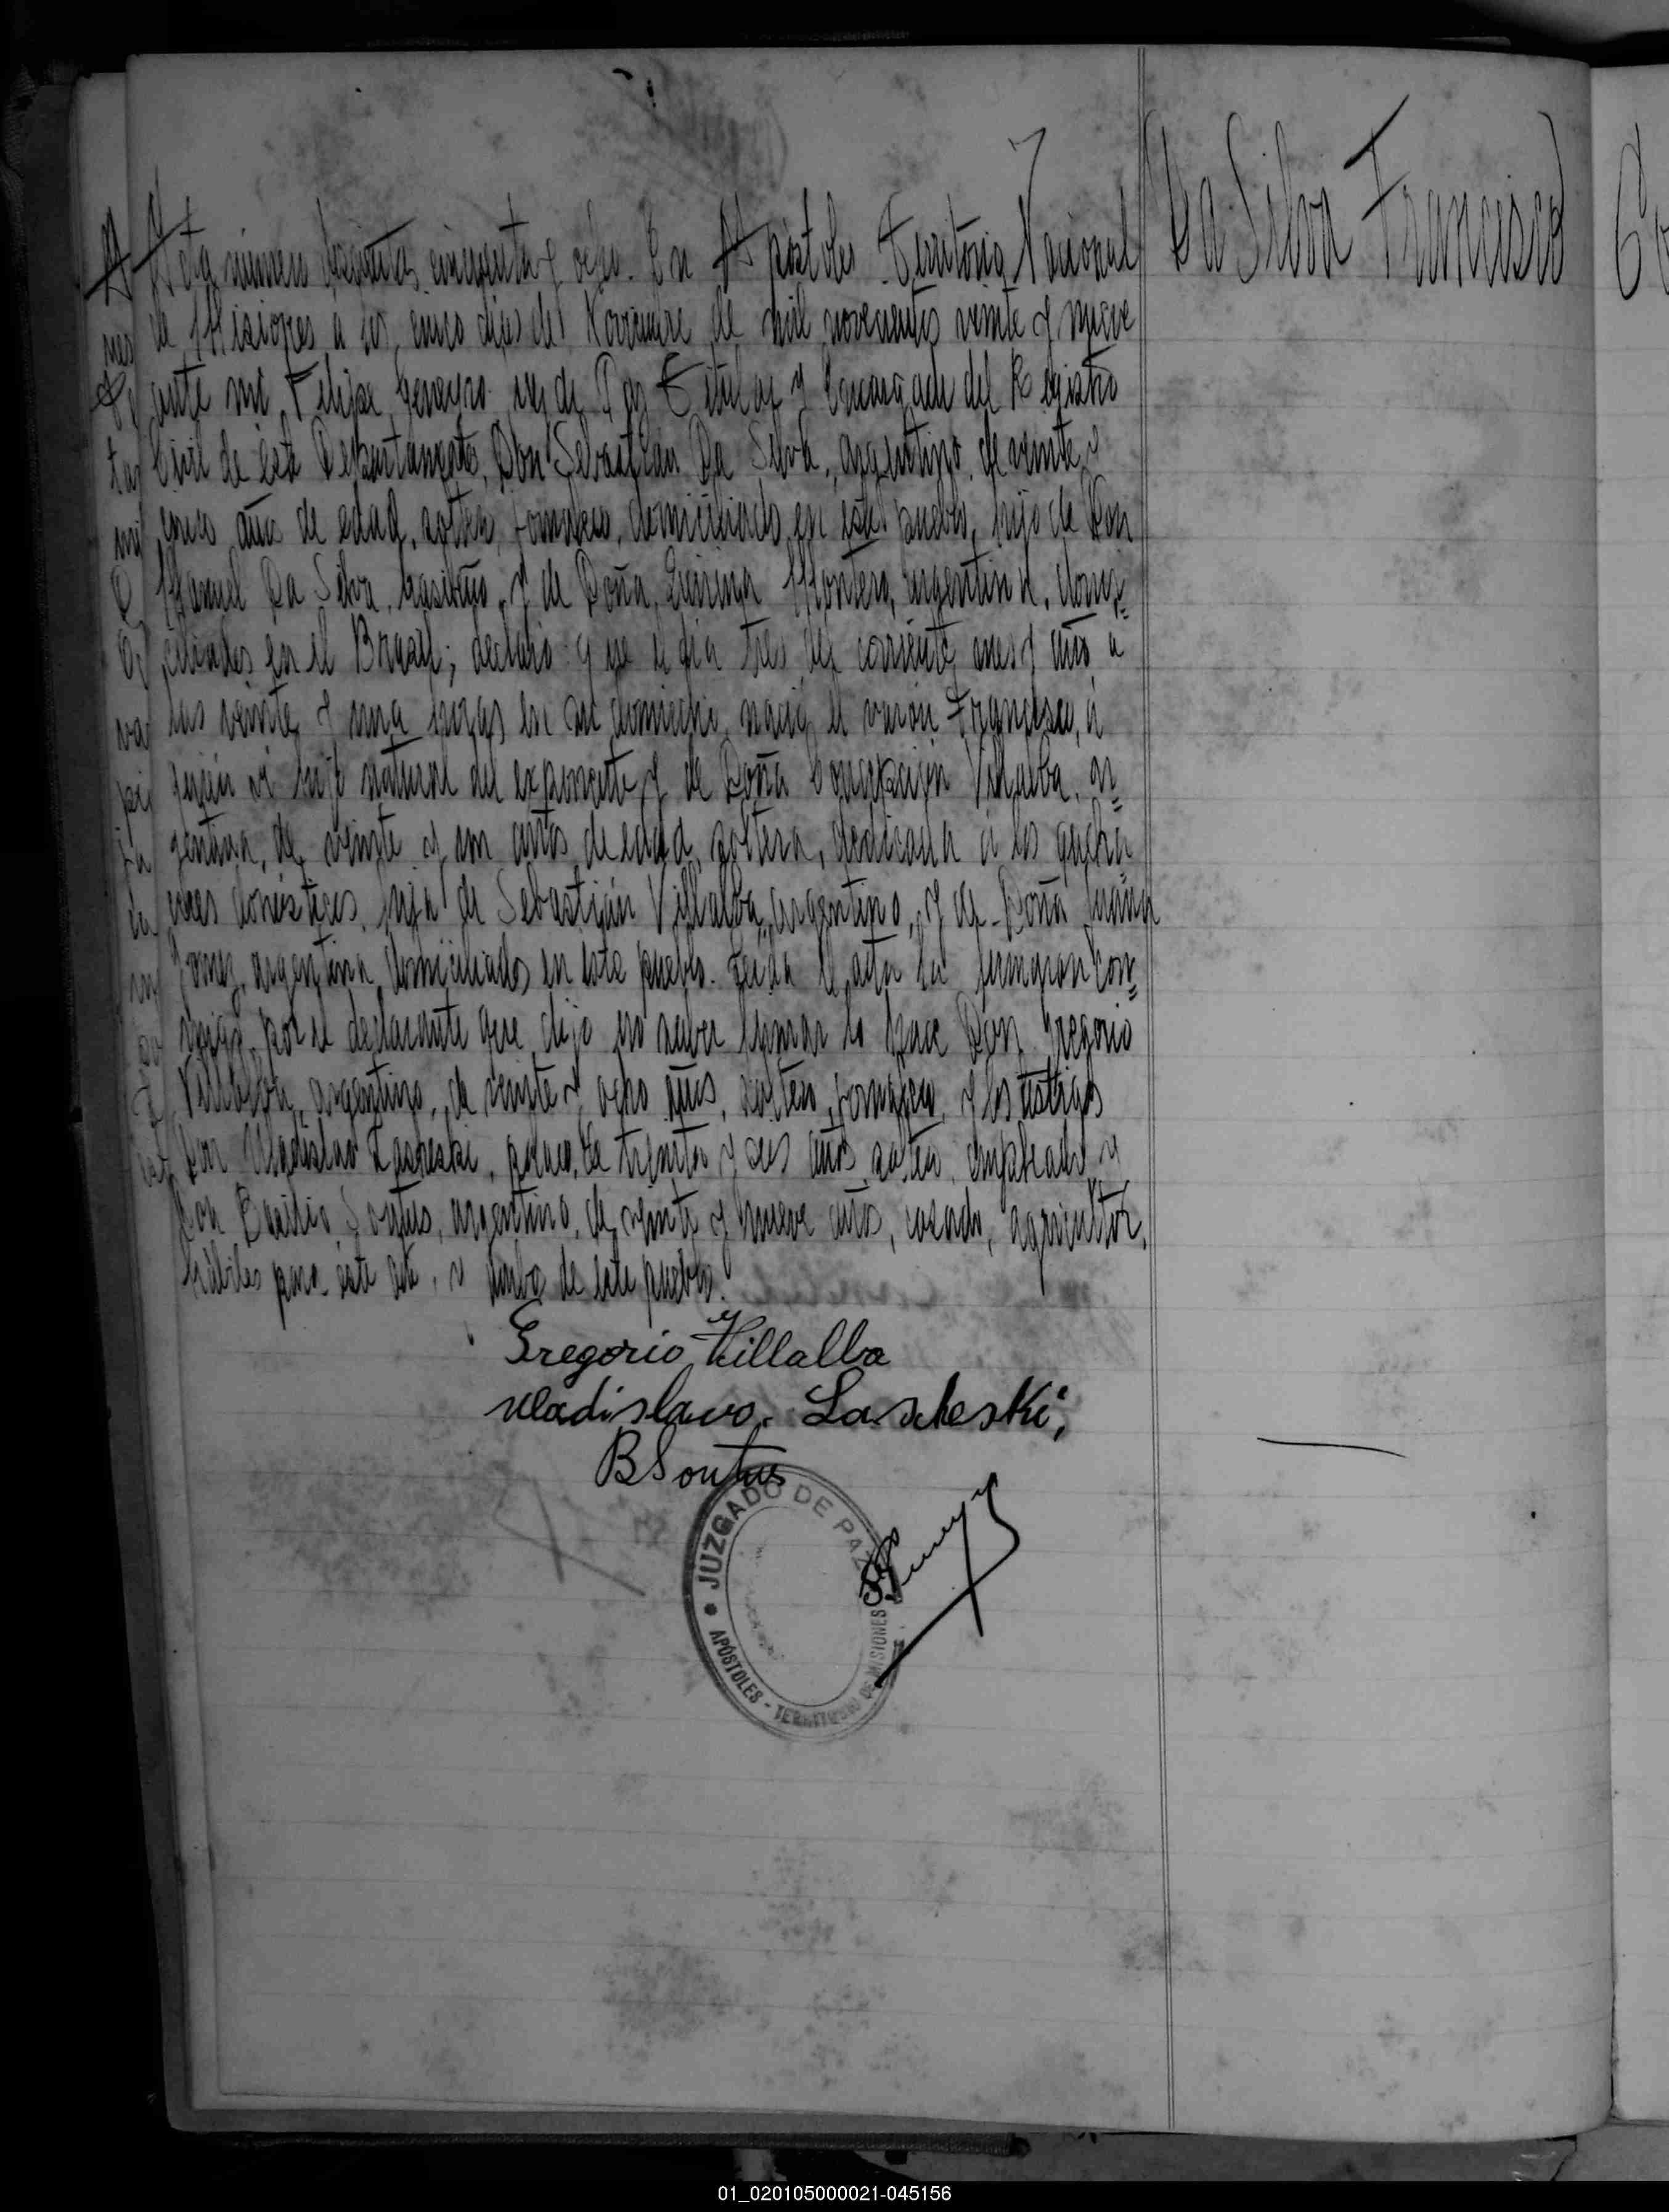 Da Silva Francisco
Acta número doscientos cincuenta y ocho. En Apóstoles Territorio Nacional
de Misiones a los cinco dias del Noviembre de mil novecientos veinte y nueve
ante mi, Felipe juez de Paz Titular y Encargado del Registro
Civil de este Departamento, Don Sebastián Da Silva, argentino, de veinte y
cinco años de edad, soltero, jornalero, domiciliado en este pueblo, hijo de Don
Manuel Da Silva, brasileño, y de Doña Quirina Montero, argentina, domi=
ciliados en el Brazil; declaró: que el dia tres del corriente mes y año a
las veinte y una horas en su domicilio, nació el varón Francisco, a
quien es hijo natural del exponente y de Doña Concepción Villalba, ar=
gentina, de veinte y un años de edad, soltera, dedicada a los queha
ceres domésticos, hija de Sebastián Villalba, argentino, y de Doña Juana
Gomez, argentina, domiciliados en este pueblo. Leida el acta la firmaron con=
migo, por el declarante que dijo no saber firmar lo hace Don Gregorio
Villalba, argentino, de veinte y ocho años, soltero, jornalero, y los testigos
Don Uladislavo Lascheski, polaco, de treinta y seis años, soltero, empleado, y
Don Basilio Sontus, argentino, de veinte y nueve años, casado, agricultor,
hábiles para este acto, y ambos de este pueblo.
Gregorio Villalba
Uladislavo. Lascheski,
B Sontus
JUZGADO DE PAZ
APÓSTOLES - TERRITORIO DE MISIONES
01_020105000021-045156